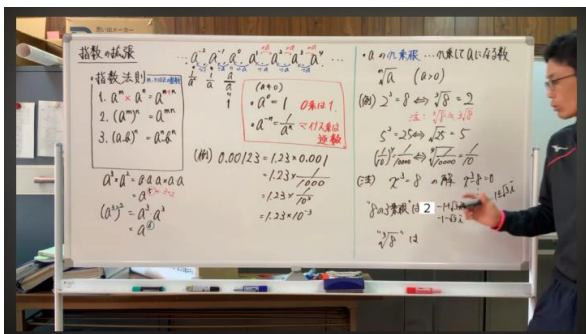 指数の拡張
… a⁻² a⁻¹ a⁰ a¹ a² a³ a⁴ …
・指数法則
1. aᵐ × aⁿ = aᵐ⁺ⁿ
2. (aᵐ)ⁿ = aᵐⁿ
3. (a·b)ⁿ = aⁿbⁿ
a³×a² = a·a·a×a·a
= a⁵
(a³)² = a³·a³
= a⁶
1
(a≠0)
・a⁰ = 1 0乗は1.
・a⁻ⁿ = 1/aⁿ ←マイナス乗は
逆数
(例) 0.00123 = 1.23×0.001
= 1.23×1/1000
= 1.23×1/10³
= 1.23×10⁻³
・aのn乗根…n乗してaになる数
ⁿ√a (a>0)
(例) 2³=8⇔ ³√8 = 2
注: ³√8 ≠ 3√8
5²=25⇔√25 = 5
(1/10)⁴ = 1/10000 ⇔ ⁴√1/10000 = 1/10
(注) x³=8 の解 x³-8=0
"8の3乗根"は 2
-1-√3i
"³√8" は